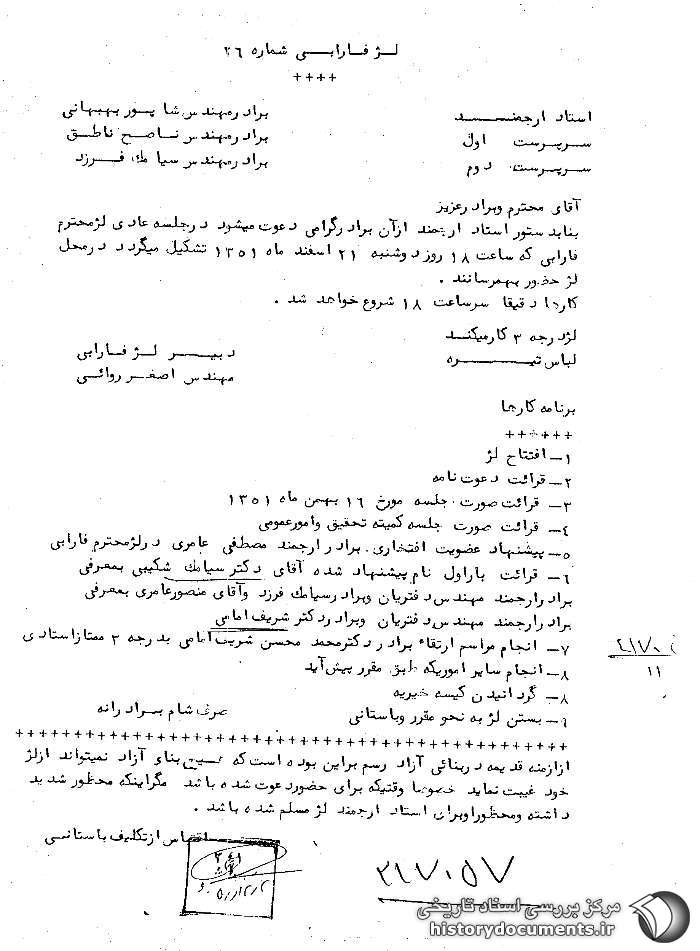 لژ فارابی شماره ۲۶
++++
استاد ارجمند برادر مهندس شاپور بهبهانی
سرپرست اول برادر مهندس ناصح ناطق
سرپرست دوم برادر مهندس سیامک فرزد
آقای محترم وبرادرعزیز
بنابدستور استاد ارجمند ازآن برادرگرامی دعوت میشود درجلسه عادی لژمحترم
فارابی که ساعت ۱۸ روز دوشنبه ۲۱ اسفند ماه ۱۳۵۱ تشکیل میگردد درمحل
لژ حضور بهمرسانند .
کارها دقیقا سرساعت ۱۸ شروع خواهد شد .
لژدرجه ۳ کارمیکند
لباس تیره
دبیر لژ فارابی
مهندس اصغر روائی
برنامه کارها
++++++
۱- افتتاح لژ
۲- قرائت دعوت نامه
۳- قرائت صورت جلسه مورخ ۱۶ بهمن ماه ۱۳۵۱
۴- قرائت صورت جلسه کمیته تحقیق وامورعمومی
۵- پیشنهاد عضویت افتخاری برادر ارجمند مصطفی عامری درلژمحترم فارابی
۶- قرائت باراول نام پیشنهاد شده آقای دکترسیامک شکیبی بمعرفی
برادرارجمند مهندس دفتریان وبرادرسیامک فرزد وآقای منصورعامری بمعرفی
برادرارجمند مهندس دفتریان وبرادردکتر شریف امامی
۷- انجام مراسم ارتقاء برادر دکترمحمد محسن شریف امامی بدرجه ۳ ممتازاستادی
۸- انجام سایر اموریکه طبق مقرر پیش آید
۸- گردانیدن کیسه خیریه
۹- بستن لژ به نحو مقرر وباستانی صرف شام برادرانه
++++++++++++++++++++++++++++++++++++++++
ازازمنه قدیمه دربنائی آزاد رسم براین بوده است که هیچ بنای آزاد نمیتواند ازلژ
خود غیبت نماید خصوصا وقتیکه برای حضوردعوت شده باشد مگراینکه محظور شدید
داشته ومحظوراوبرای استاد ارجمند لژ مسلم شده باشد .
اقتباس ازتکلیف باستانی
۳۱۷۰۵۷
۱۱
مرکز بررسی اسناد تاریخی
historydocuments.ir